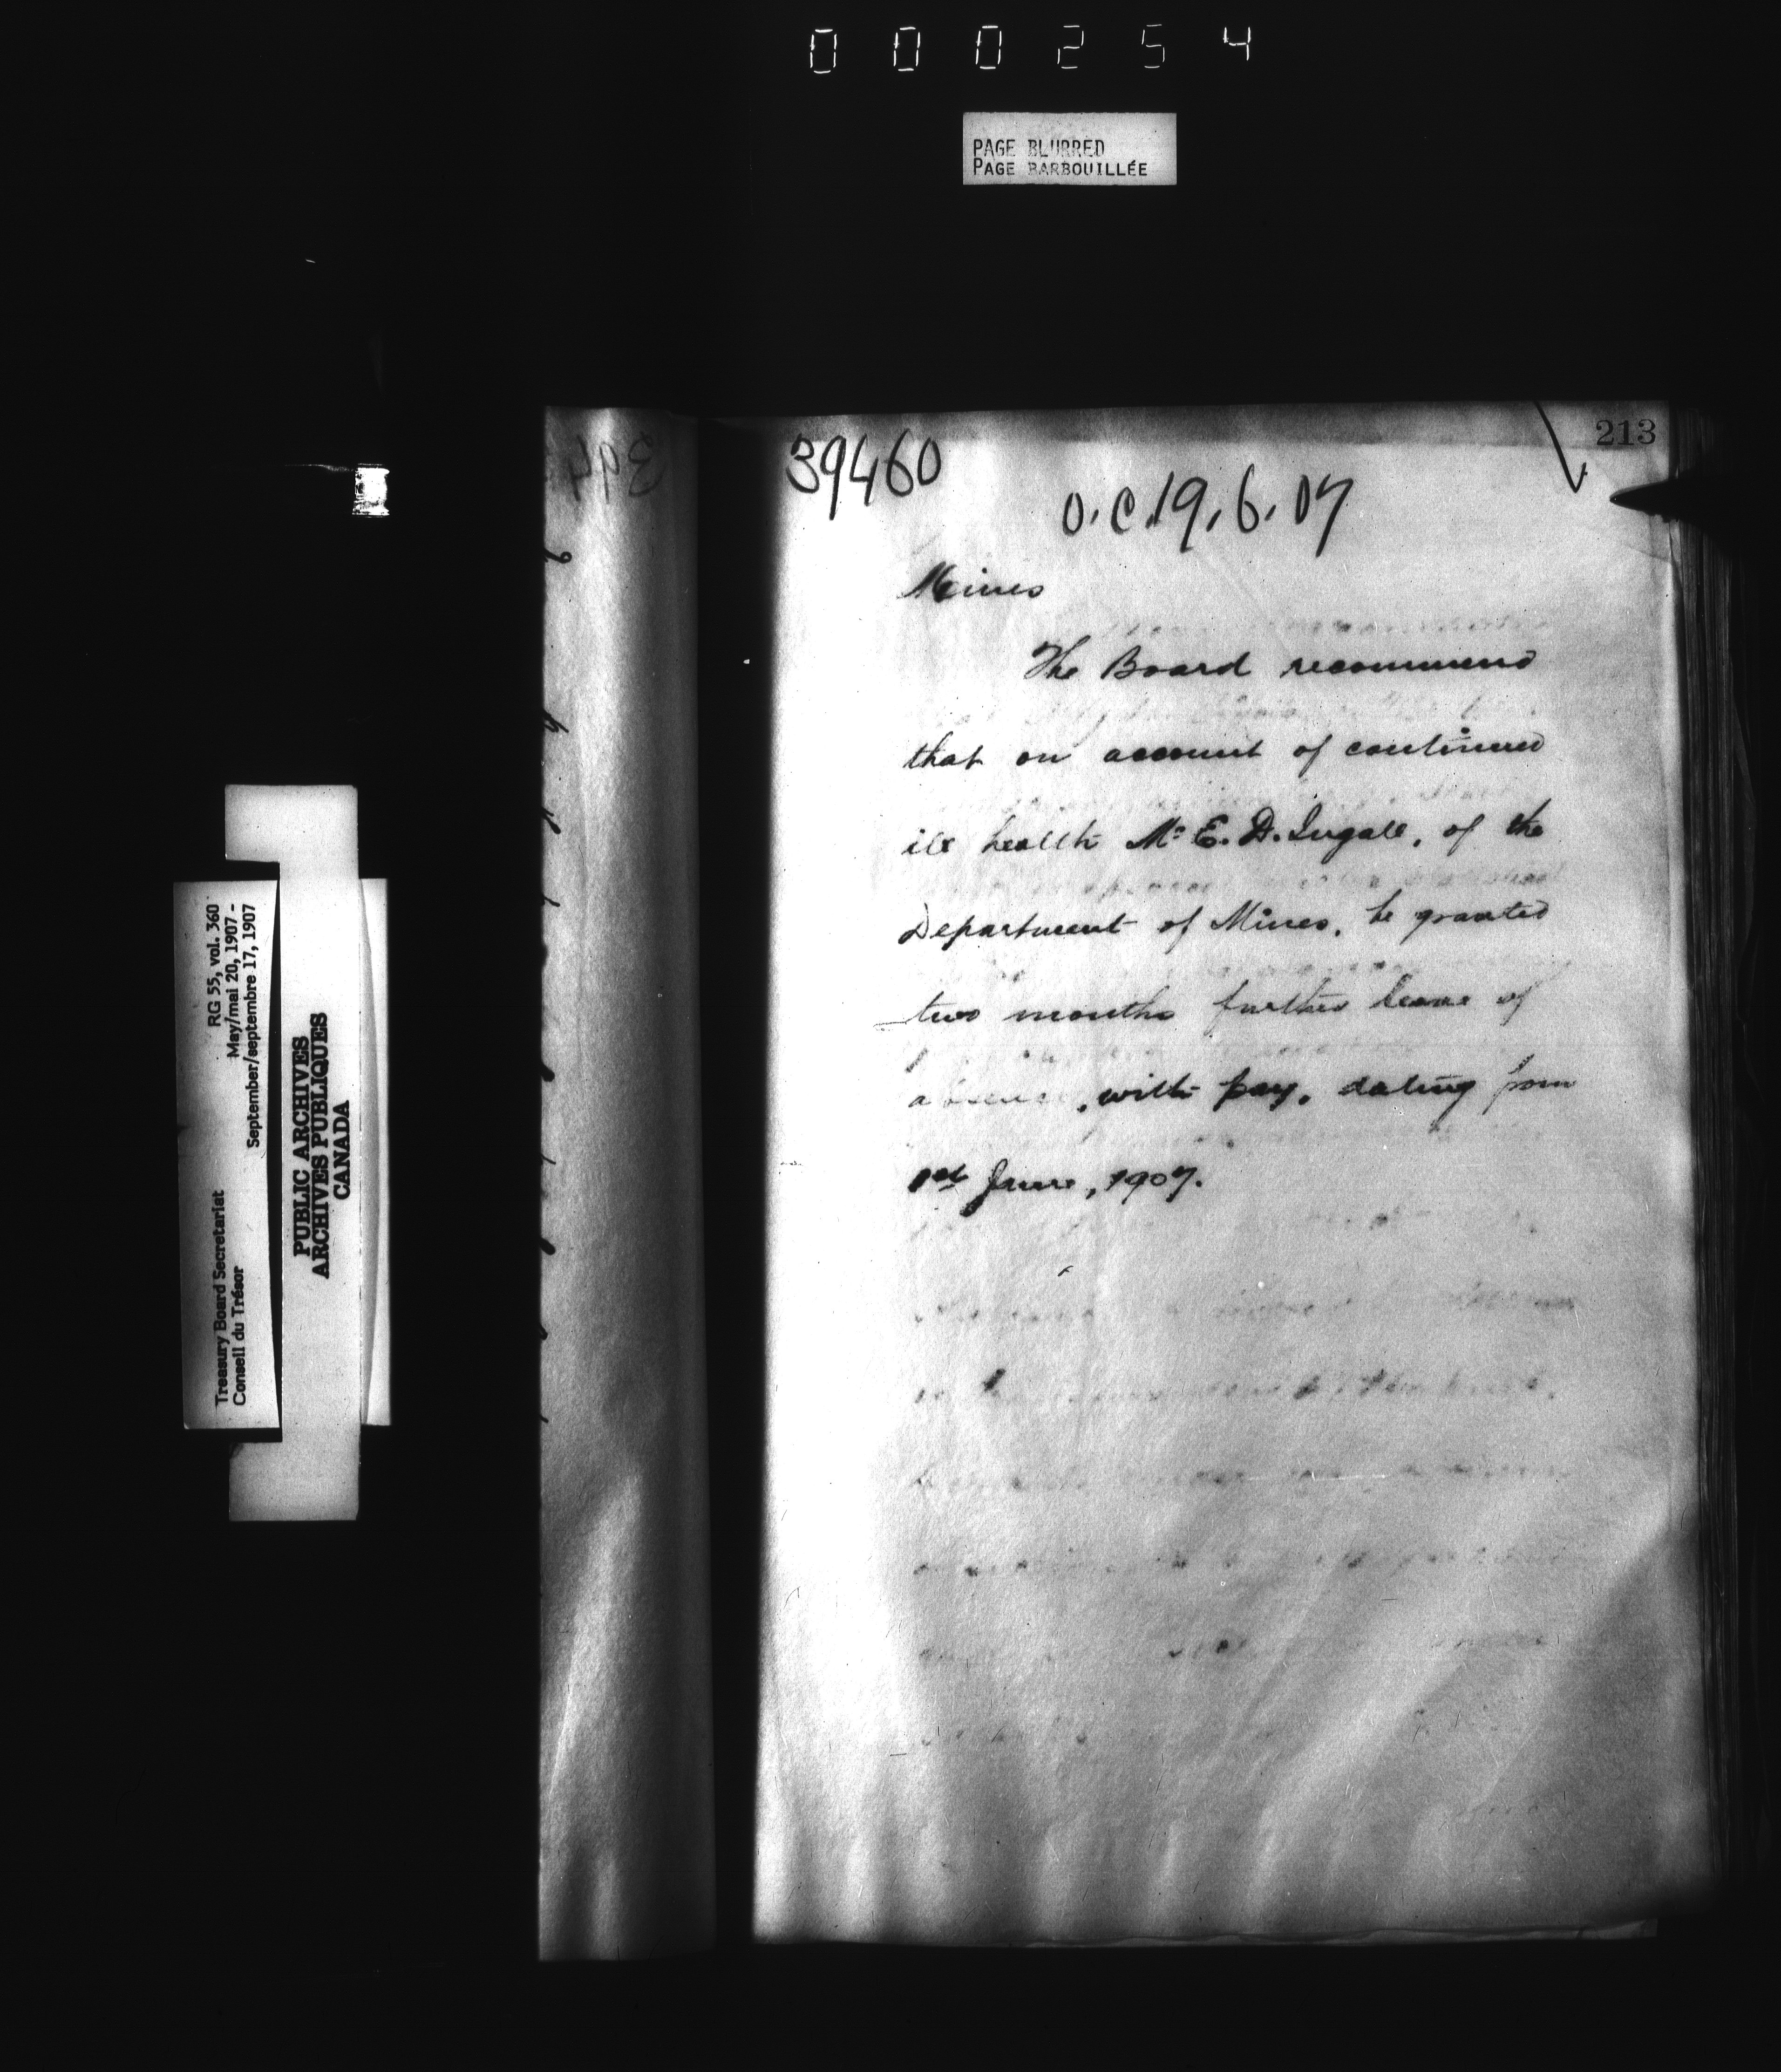 000254
PAGE BLURRED
PAGE BARBOUILLÉE
213
39460
O.C. 19.6.07
Mines
The Board recommend
that on account of continued
ill health Mr E. D. Ingall, of the
Department of Mines, be granted
two months further leave of
absence, with pay, dating from
1st June, 1907.
RG 55, vol. 360
May/mai 20, 1907 -
September/septembre 17, 1907
Treasury Board Secretariat
Conseil du Trésor
PUBLIC ARCHIVES
ARCHIVES PUBLIQUES
CANADA